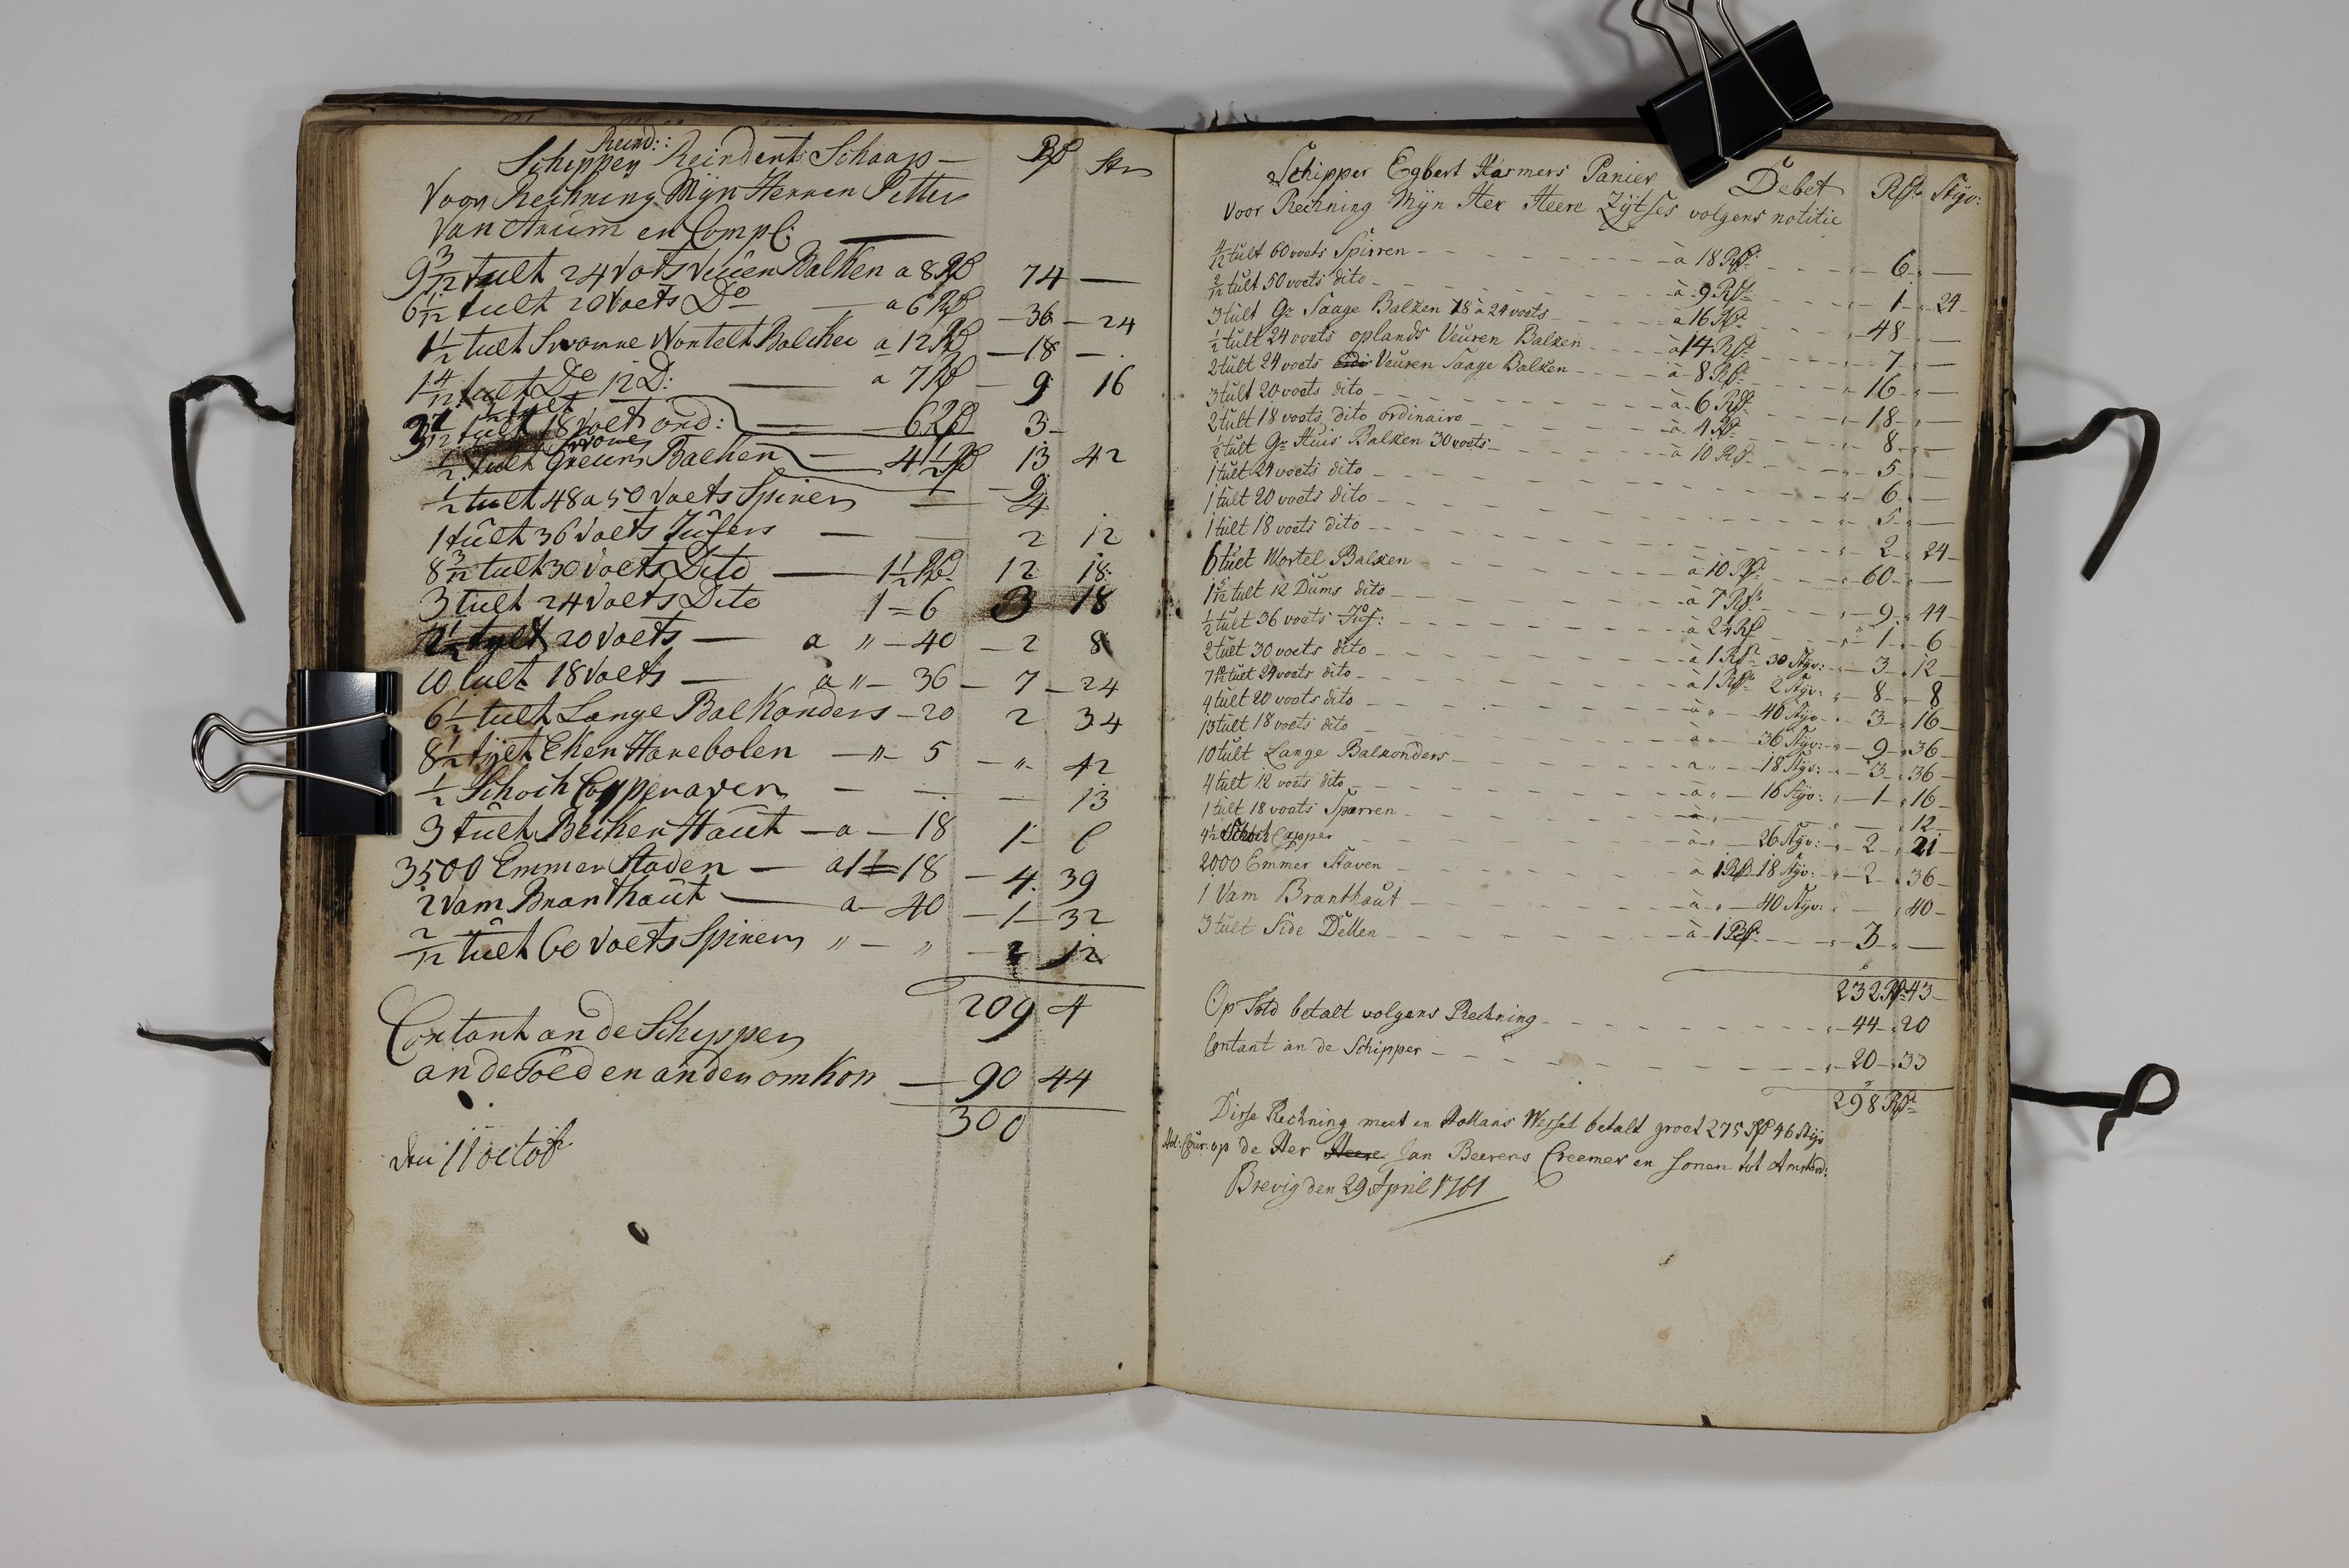 Reind::
Schippen Reinderts Schaap — Rd Stn
Voor Rechning Mijn Herren Pitter
Van Arum en Compl:
9 3/12 tult 24 Voets Veuen Balken a 8 Rd 74 —
6 1/12 tult 20 Voets Do — a 6 Rd — 36 — 24
1 1/2 tult Svanne Wortelt Balcken a 12 Rd — 18 —
1 4/12 tult Do 12 D: — a 7 Rd — 9 16
1/2 tult 18 Voets ord: — 6 Rd 3 -
1/2 tult Greuns Balken — 4 1/2 Rd 13 42
1/2 tult 48 a 50 Voets Spiren — 9
4
1 tult 36 Voets Jufers — 2 12
8 3/12 tult 30 Voets Dito — 1 1/2 Rd 12 18
3 tult 24 Voets Dito 1 = 6 3 18
tylt 20 Voets — a " — 40 — 2 8
10 tult 18 Voets — a " — 36 — 7 — 24
6 1/2 tult Lange Balkonders — 20 2 34
8 1/2 tylt Eken Hanebolen — " — 5 — " — 42
1/2 Schoch Copperaven — — — 13
3 tult Beiken Haut — a — 18 1 — 6
3500 Emmer Staden — a 1 = 18 — 4 39
2 Vam Branthaut — a — 40 — 1 — 32
2/12 tult 60 Voets Spiren " — " — 2 12
209 4
Contant an de Schippen
an de Toll en anden omkon — 90 44
300
den 11 octob:
Schipper Egbert Harmers Panier Debet Rds Styv:
Voor Rechning Mijn Her Heere Zijtses volgens notitie
4/12 tult 60 voets Spirren — à 18 Rds — 6 —
2/12 tult 50 voets dito — à 9 Rds — 1 — 24
3 tult Gr Saage Balken 18 à 24 voets — à 16 Rds — 48 —
1/2 tult 24 voets oplands Veuren Balken — à 14 Rds — 7 —
2 tult 24 voets Veuren Saage Balken — à 8 Rds — 16 —
3 tult 20 voets dito — à 6 Rds — 18 —
2 tult 18 voets dito ordinaire — à 4 Rds — 8 —
1/2 tult Gr Huis Balken 30 voets — à 10 Rds — 5 —
1 tult 24 voets dito — 6 —
1 tult 20 voets dito — 5 —
1 tult 18 voets dito — 2 — 24
6 tult Wortel Balken — à 10 Rds — 60 —
1 5/12 tult 12 Dums dito — à 7 Rds — 9 — 44
1/2 tult 36 voets Juf: — à 2 1/4 Rds — 1 — 6
2 tult 30 voets dito — à 1 Rds 30 Styv: — 3 — 12
7 10/12 tult 24 voets dito — à 1 Rds 2 Styv: — 8 — 8
4 tult 20 voets dito — à " — 40 Styv — 3 — 16
13 tult 18 voets dito — à " — 36 Styv: — 9 — 36
10 tult Lange Balkonders — a " — 18 Styv: — 3 — 36
4 tult 12 voets dito — a " — 16 Styv: — 1 — 16
1 tult 18 voets Sparren — à — — 12
4 1/2 Schock Capper — à " — 26 Styv: — 2 — 21
2000 Emmer Staven — à 1 Rds 18 Styv: — 2 — 36
1 Vam Branthaut — à " — 40 Styv: — 40
3 tult Side Dellen — à 1 Rds — 3 —
232 Rds 43
Op Told betalt volgens Rechning — 44 — 20
Contant an de Schipper — 20 — 33
298 Rds
Disse Rechning meet en Hollans Wessel betalt groet 275 Rds 46 Styv
Hol: Cour: op de Her Jan Beerens Creemer en Sonen tot Amsterd:
Brevig den 29 April 1761